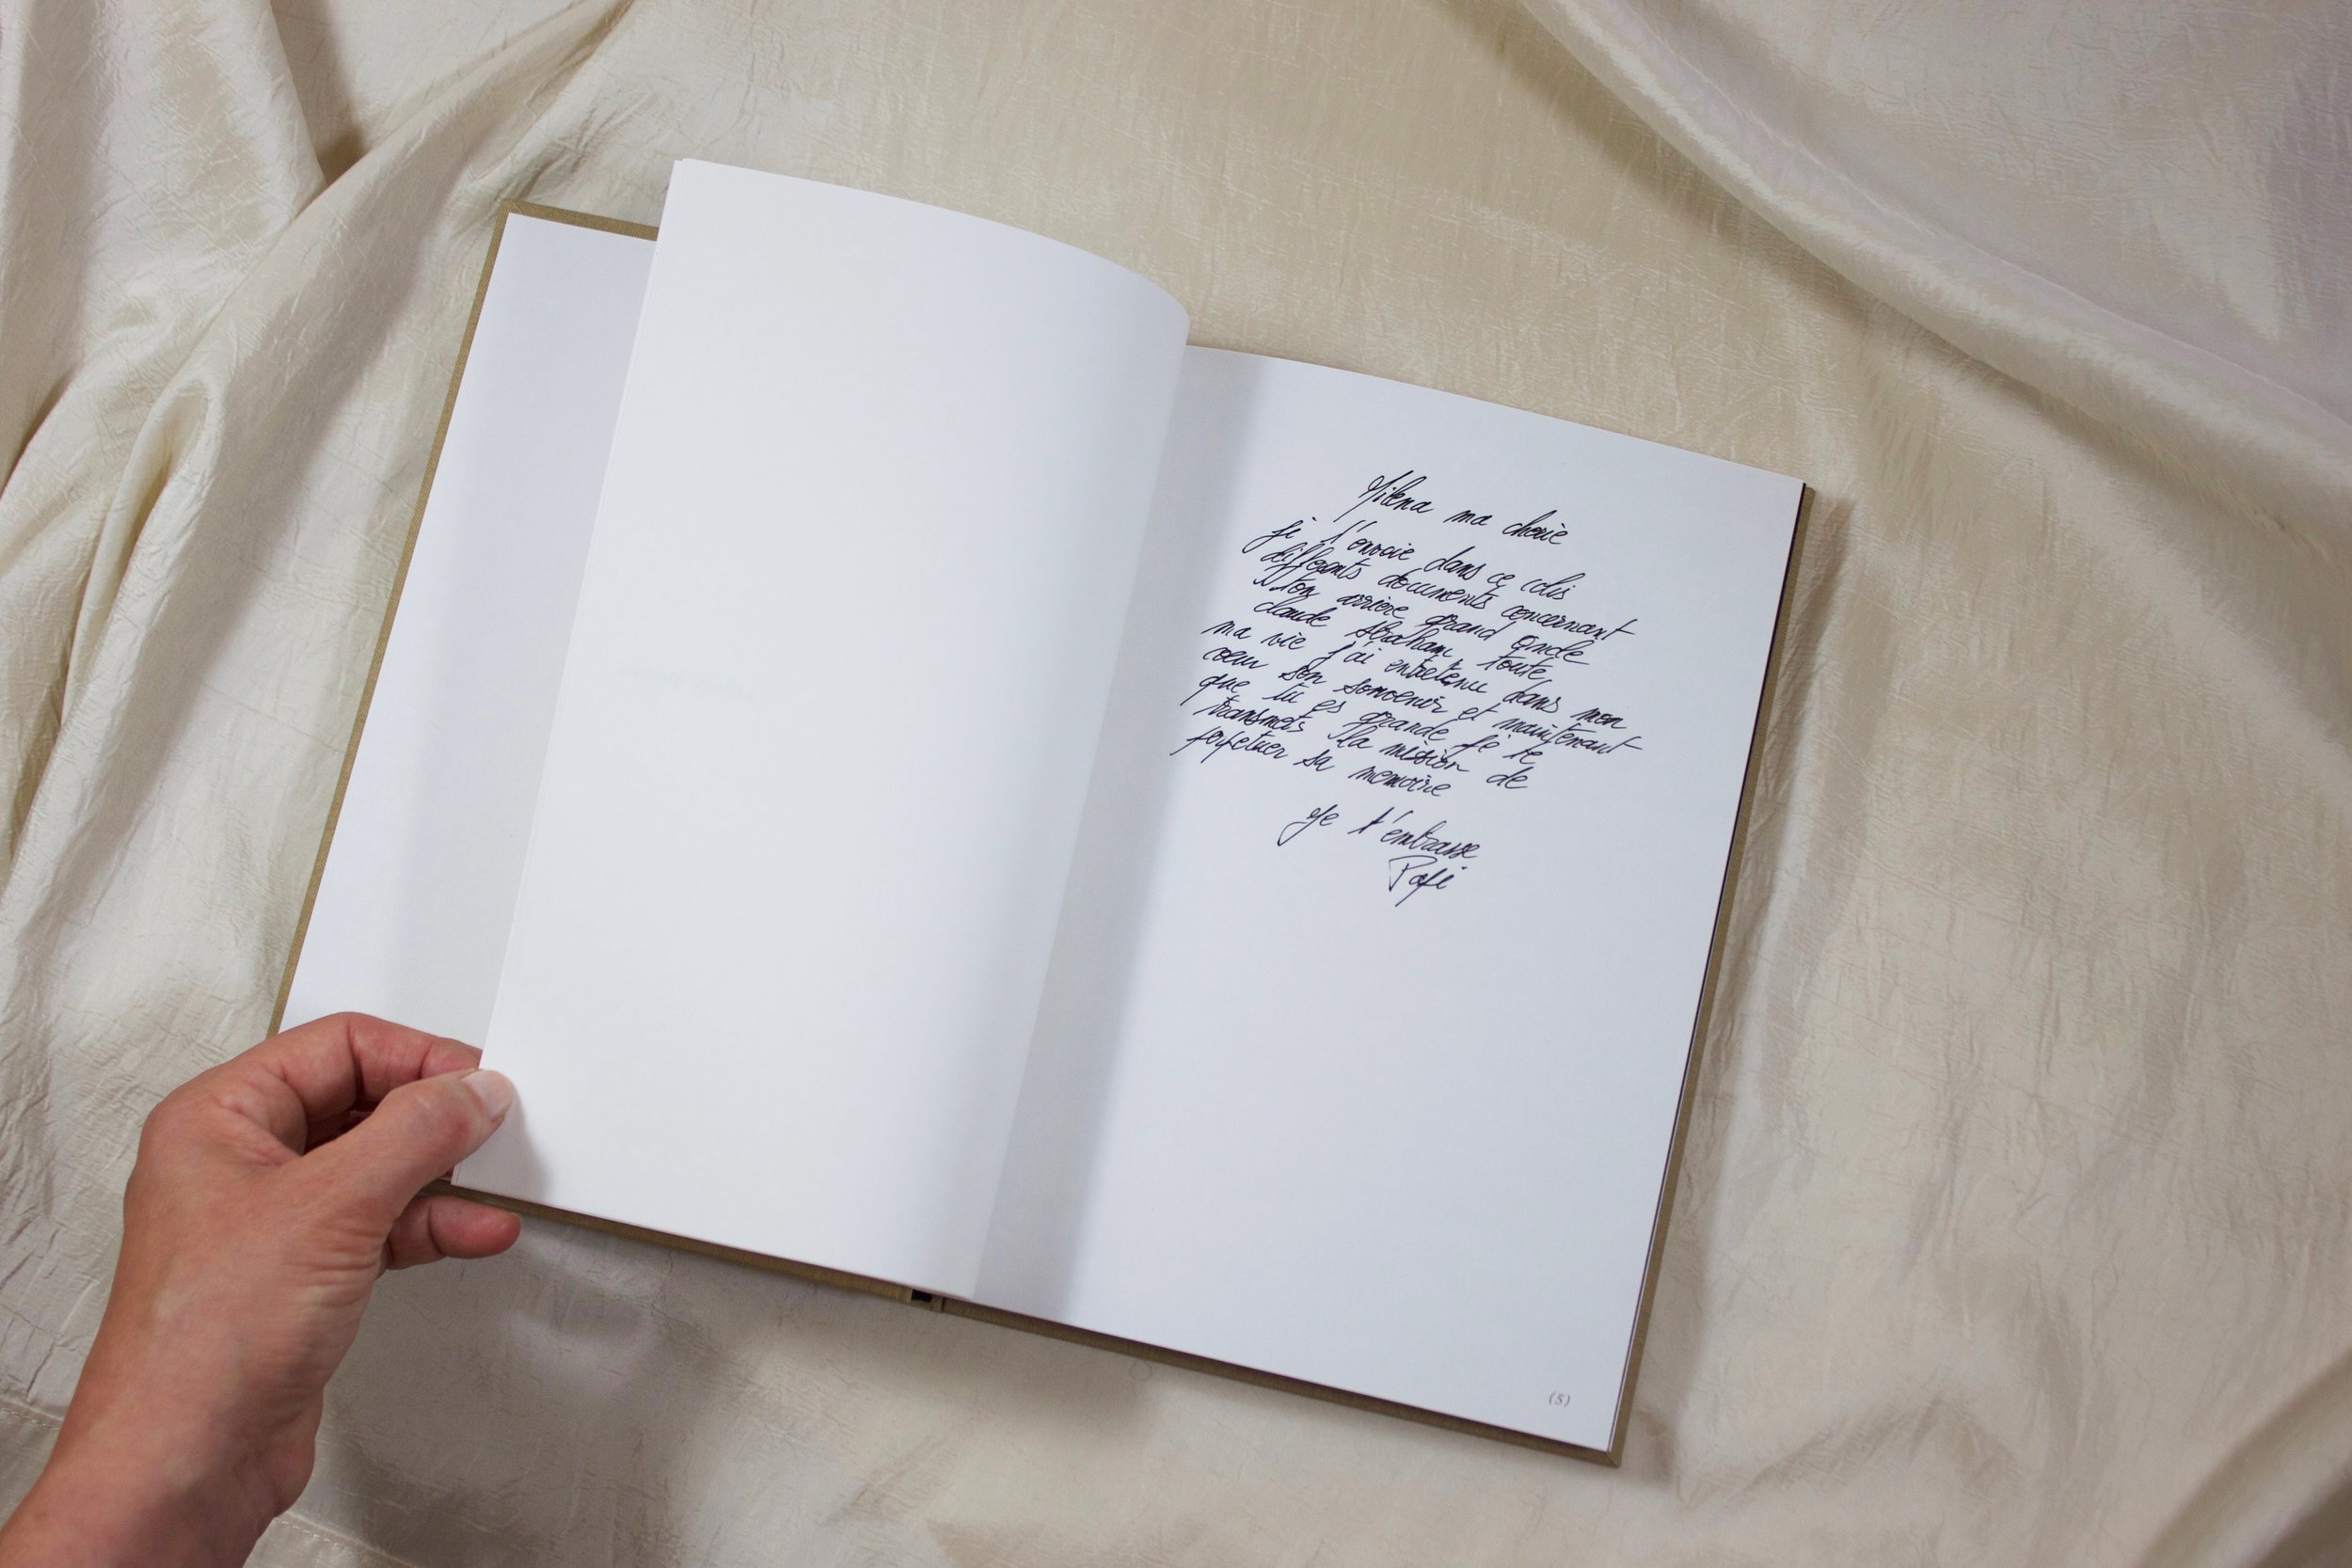 Milena ma cherie
je t'envoie dans ce colis
differents documents concernant
ton arrière grand oncle
claude Abraham. toute
ma vie j'ai entretenu dans mon
coeur son souvenir et maintenant
que tu es grande je te
transmets la mission de
perpetuer sa memoire
Je t'embrasse
Papi
(5)